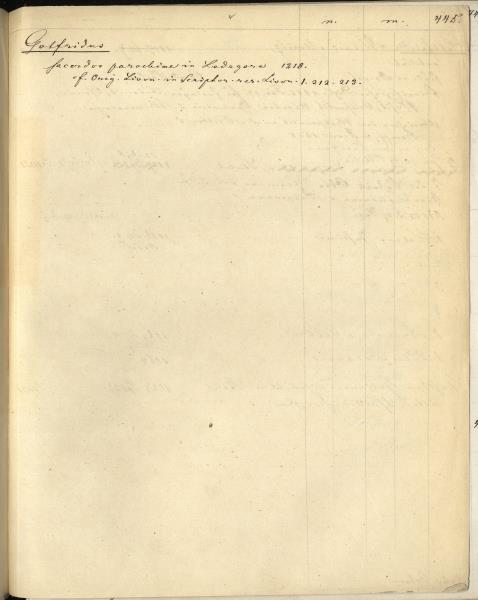 n. m. 445.
Gotfridus
sacerdos parochiae in Ledegore 1218.
cf Orig. Livon. in Scriptor. rer. Livon. I. 212. 213.